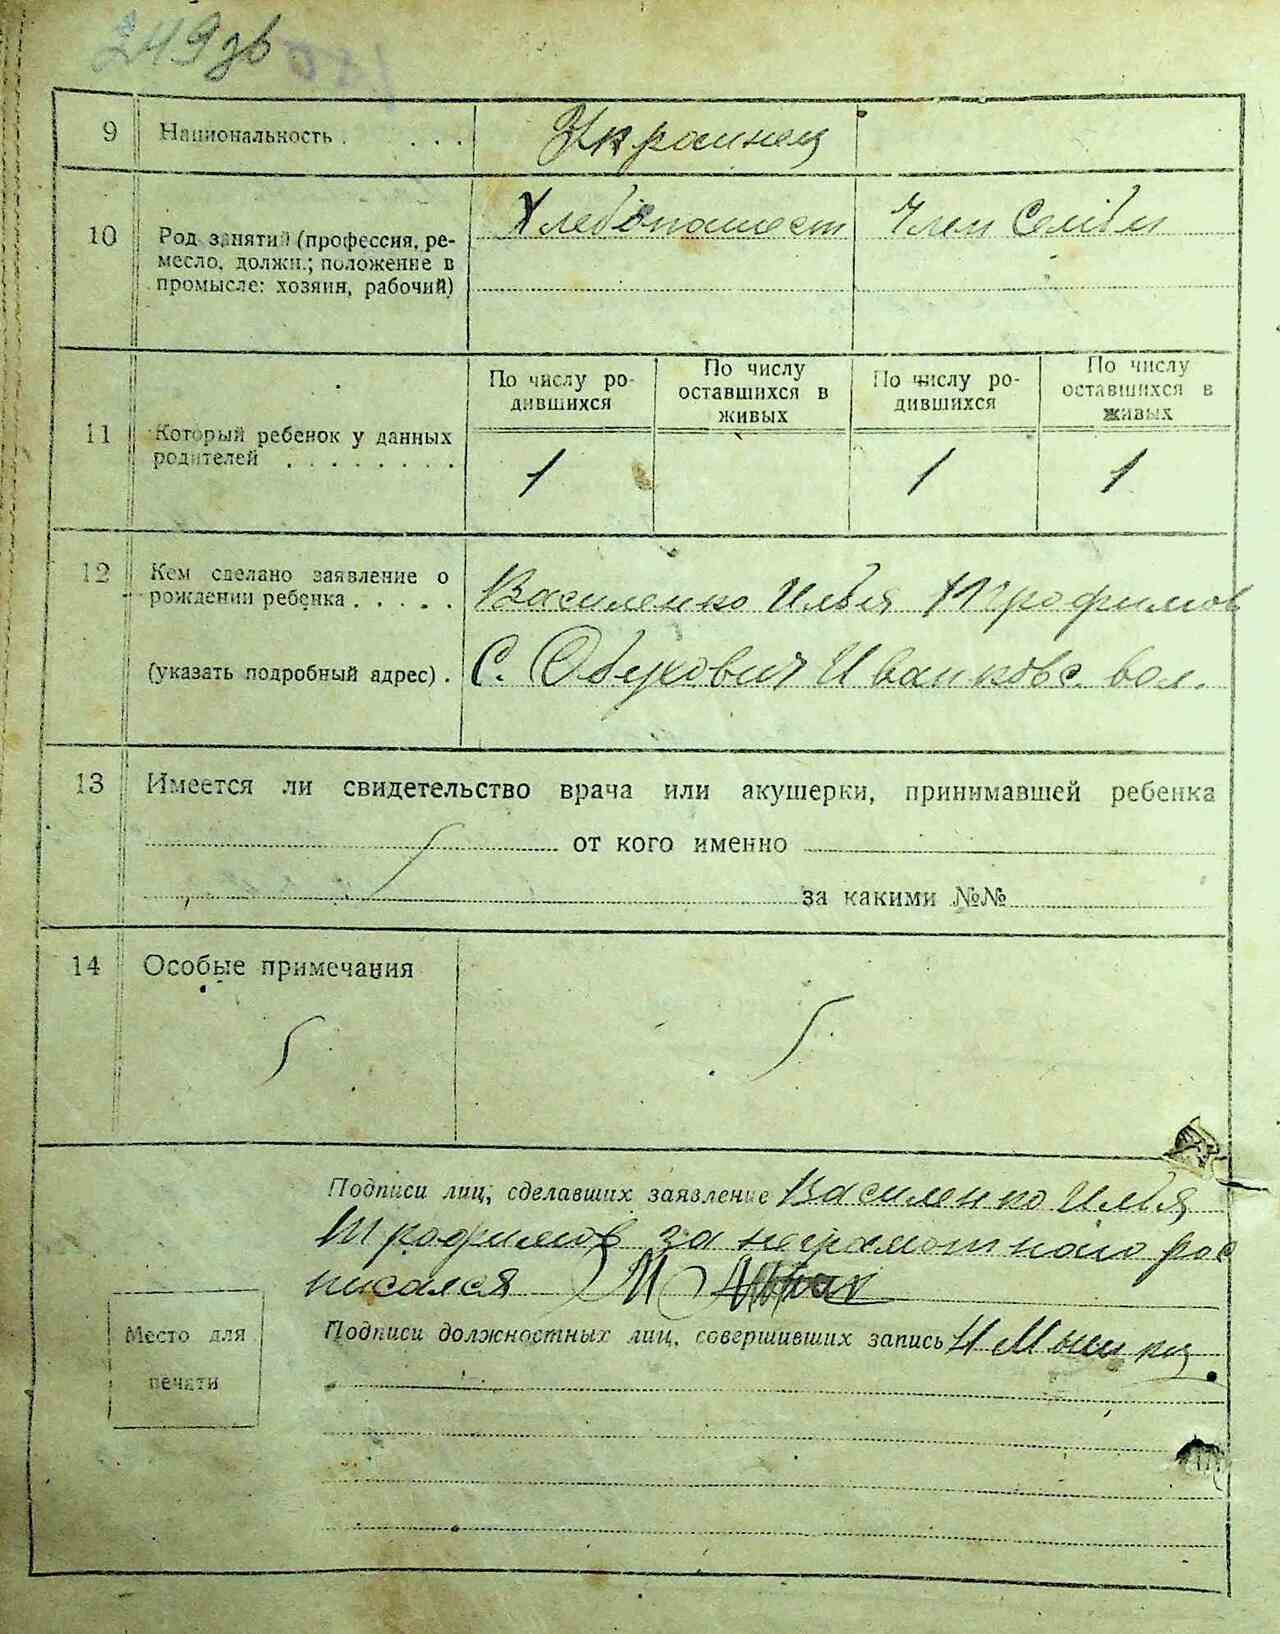 249 зв
9 Национальность . . . . Украинец
10 Род занятий (профессия, ре-
месло, должн.; положение в
промысле: хозяин, рабочий)
Хлебопашест Член Семьи
11 Который ребенок у данных
родителей . . . . . . . .
По числу ро-
дившихся
По числу
оставшихся в
живых
По числу ро-
дившихся
По числу
оставшихся в
живых
1 1 1
12 Кем сделано заявление о
рождении ребенка . . . . . Василенко Илья Трофимов
(указать подробный адрес) . С. Обухович Иванковс. вол.
13 Имеется ли свидетельство врача или акушерки, принимавшей ребенка
от кого именно
за какими №№
14 Особые примечания
Подписи лиц, сделавших заявление Василенко Илья
Трофимов за неграмотного рос
писался
Место для
печати
Подписи должностных лиц, совершивших запись